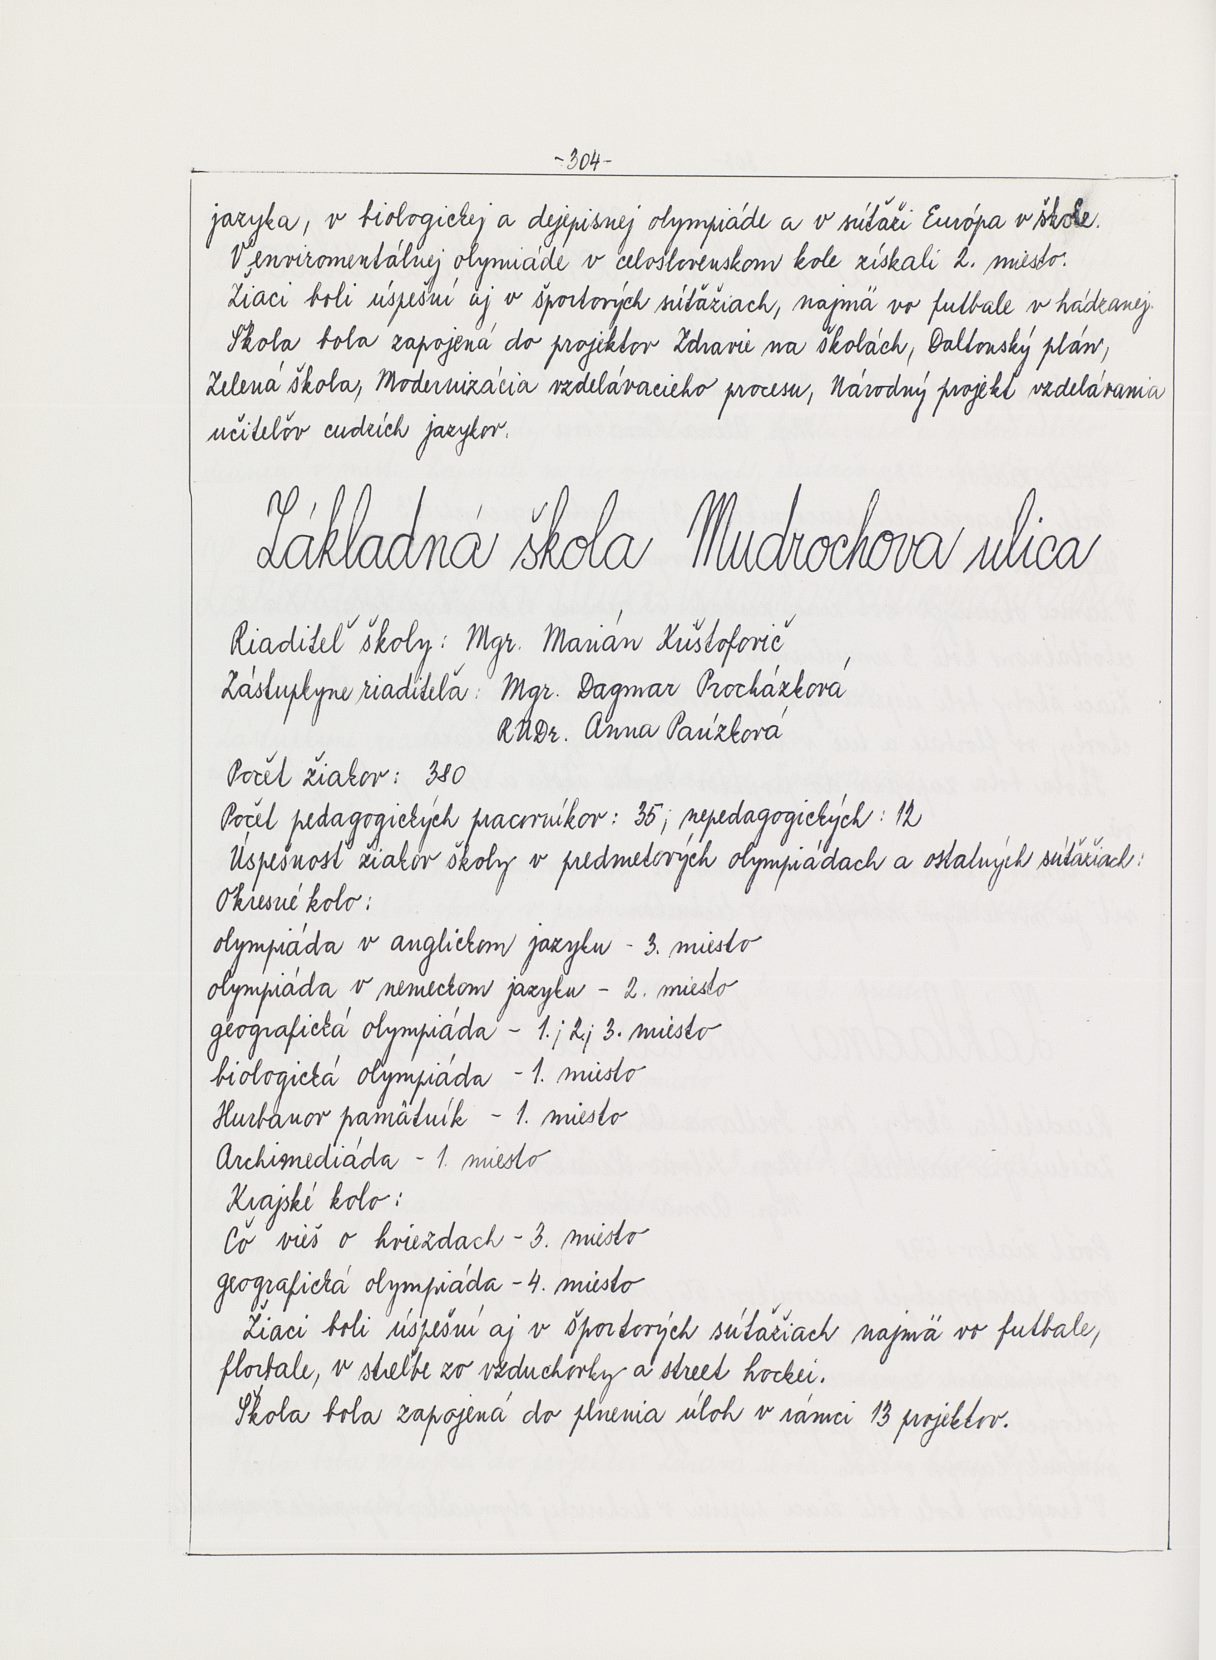 -304-
jazyka, v biologickej a dejepisnej olympiáde a v súťaži Európa v škole.
V enviromentálnej olymiáde v celoslovenskom kole získali 2. miesto.
Žiaci boli úspešní aj v športových súťažiach, najmä vo futbale v hádzanej.
Škola bola zapojená do projektov Zdravie na školách, Daltonský plán,
Zelená škola, Modernizácia vzdelávacieho procesu, Národný projekt vzdelávania
učiteľov cudzích jazykov.
Základná škola Mudrochova ulica
Riaditeľ školy: Mgr. Marián Kuštofovič
Zástupkyne riaditeľa: Mgr. Dagmar Procházková
RNDr. Anna Paúzková
Počet žiakov: 380
Počet pedagogických pracovníkov: 35, nepedagogických: 12
Úspešnosť žiakov školy v predmetových olympiádach a ostatných súťažiach:
Okresné kolo:
olympiáda v anglickom jazyku - 3. miesto
olympiáda v nemeckom jazyku - 2. miesto
geografická olympiáda - 1.; 2.; 3. miesto
biologická olympiáda - 1. miesto
Hurbanov pamätník - 1. miesto
Archimediáda - 1. miesto
Krajské kolo:
Čo vieš o hviezdach - 3. miesto
geografická olympiáda - 4. miesto
Žiaci boli úspešní aj v športových súťažiach najmä vo futbale,
florbale, v streľbe zo vzduchovky a street hockei.
Škola bola zapojená do plnenia úloh v rámci 13 projektov.